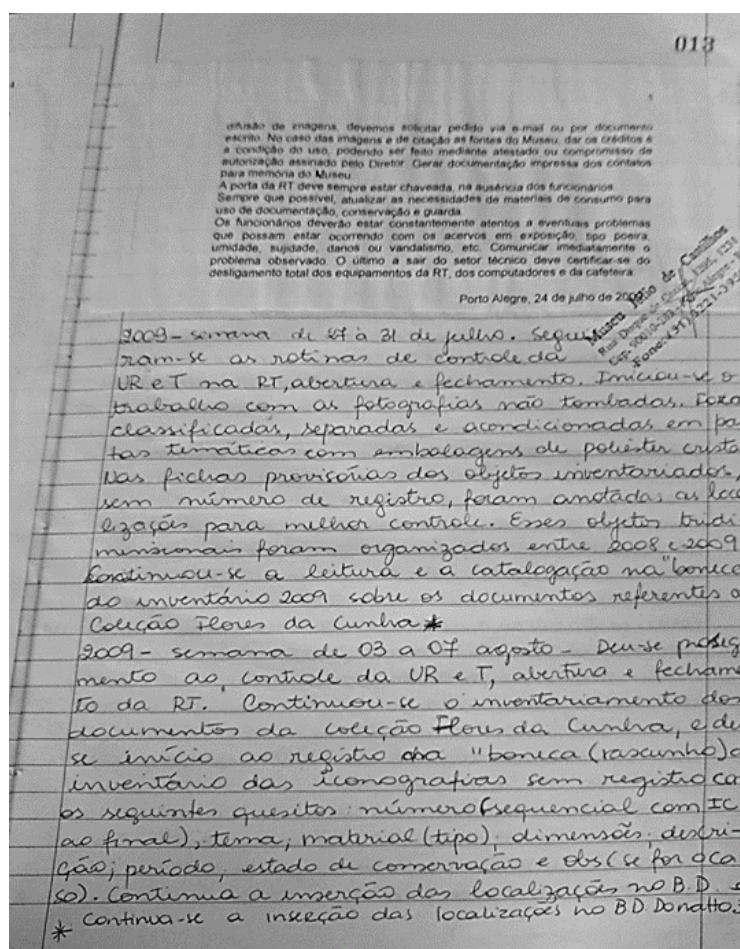 013
1
difusão de imagens, devemos solicitar pedido via e-mail ou por documento
escrito. No caso das imagens e de citação as fontes do Museu, dar os créditos é
a condição do uso, podendo ser feito mediante atestado ou compromisso de
autorização assinado pelo Diretor. Gerar documentação impressa dos contatos
para memória do Museu.
A porta da RT deve sempre estar chaveada, na ausência dos funcionários.
Sempre que possível, atualizar as necessidades de materiais de consumo para
uso de documentação, conservação e guarda.
Os funcionários deverão estar constantemente atentos a eventuais problemas
que possam estar ocorrendo com os acervos em exposição, tipo poeira,
umidade, sujidade, danos ou vandalismo, etc. Comunicar imediatamente o
problema observado. O último a sair do setor técnico deve certificar-se do
desligamento total dos equipamentos da RT, dos computadores e da cafeteira.
Porto Alegre, 24 de julho de 2009
Museu Júlio de Castilhos
Rua Duque de Caxias, 1205, 1231
Fone: (51) 3221-39
2009 - semana de 27 à 31 de julho. Segui
ram-se as rotinas de controle da
UR e T na RT, abertura e fechamento. Iniciou-se o
trabalho com as fotografias não tombadas. Fora
classificadas, separadas e acondicionadas em pa
tas temáticas com embalagens de poliéster crista
Nas fichas provisórias dos objetos inventariados,
sem número de registro, foram anotadas as loca
lizações para melhor controle. Esses objetos tridi
mensionais foram organizados entre 2008 e 2009
Continuou-se a leitura e a catalogação na "boneca
do inventário 2009 sobre os documentos referentes a
Coleção Flores da Cunha *
2009 - semana de 03 a 07 agosto - Deu-se prosseg
mento ao controle da UR e T, abertura e fechame
to da RT. Continuou-se o inventariamento dos
documentos da coleção Flores da Cunha, e de
se início ao registro da "boneca (rascunho) d
inventário das iconografias sem registro co
os seguintes quesitos: número (sequencial com IC
ao final), tema; material (tipo); dimensões; descri-
ção; período, estado de conservação e obs (se for o ca
so). Continua a inserção das localizações no B.D.
* Continua-se a inserção das localizações no BD Donatto.